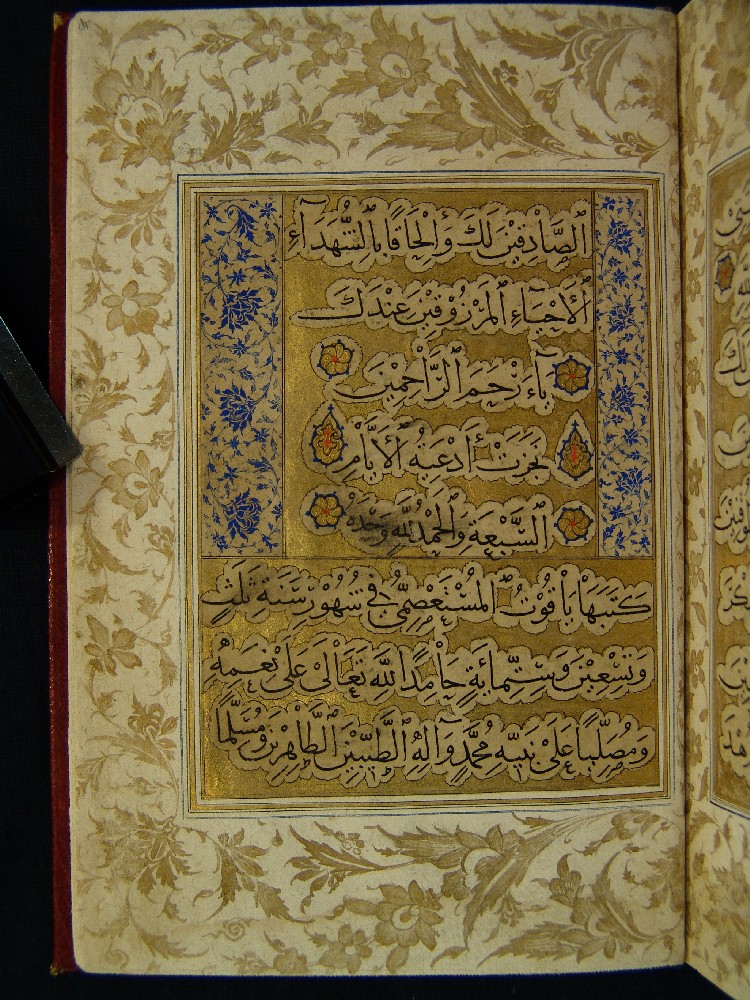 الصَّادِقِينَ لَكَ وَإِلْحَاقًا بِالشُّهَدَآءِ
الْأَحْيَاءِ الْمَرْزُوقِينَ عِنْدَكَ
يَآ أَرْحَمَ الرَّاحِمِينَ
نَجَزَتْ أَدْعِيَةُ الْأَيَّامِ
السَّبْعَةِ وَالْحَمْدُ لِلّهِ وَحْدَهُ
كَتَبَهَا يَاقُوتُ الْمُسْتَعْصِمِيُّ فِي شُهُورِ سَنَةِ ثَلٰثٍ
وَتِسْعِينَ وَسِتِّمِائَةٍ حَامِدًا لِلّهِ تَعَالَى عَلَى نِعَمِهِ
وَمُصَلِّيًا عَلَى نَبِيِّهِ مُحَمَّدٍ وَآلِهِ الطَّيِّبِينَ الطَّاهِرِينَ وَمُسَلِّمًا